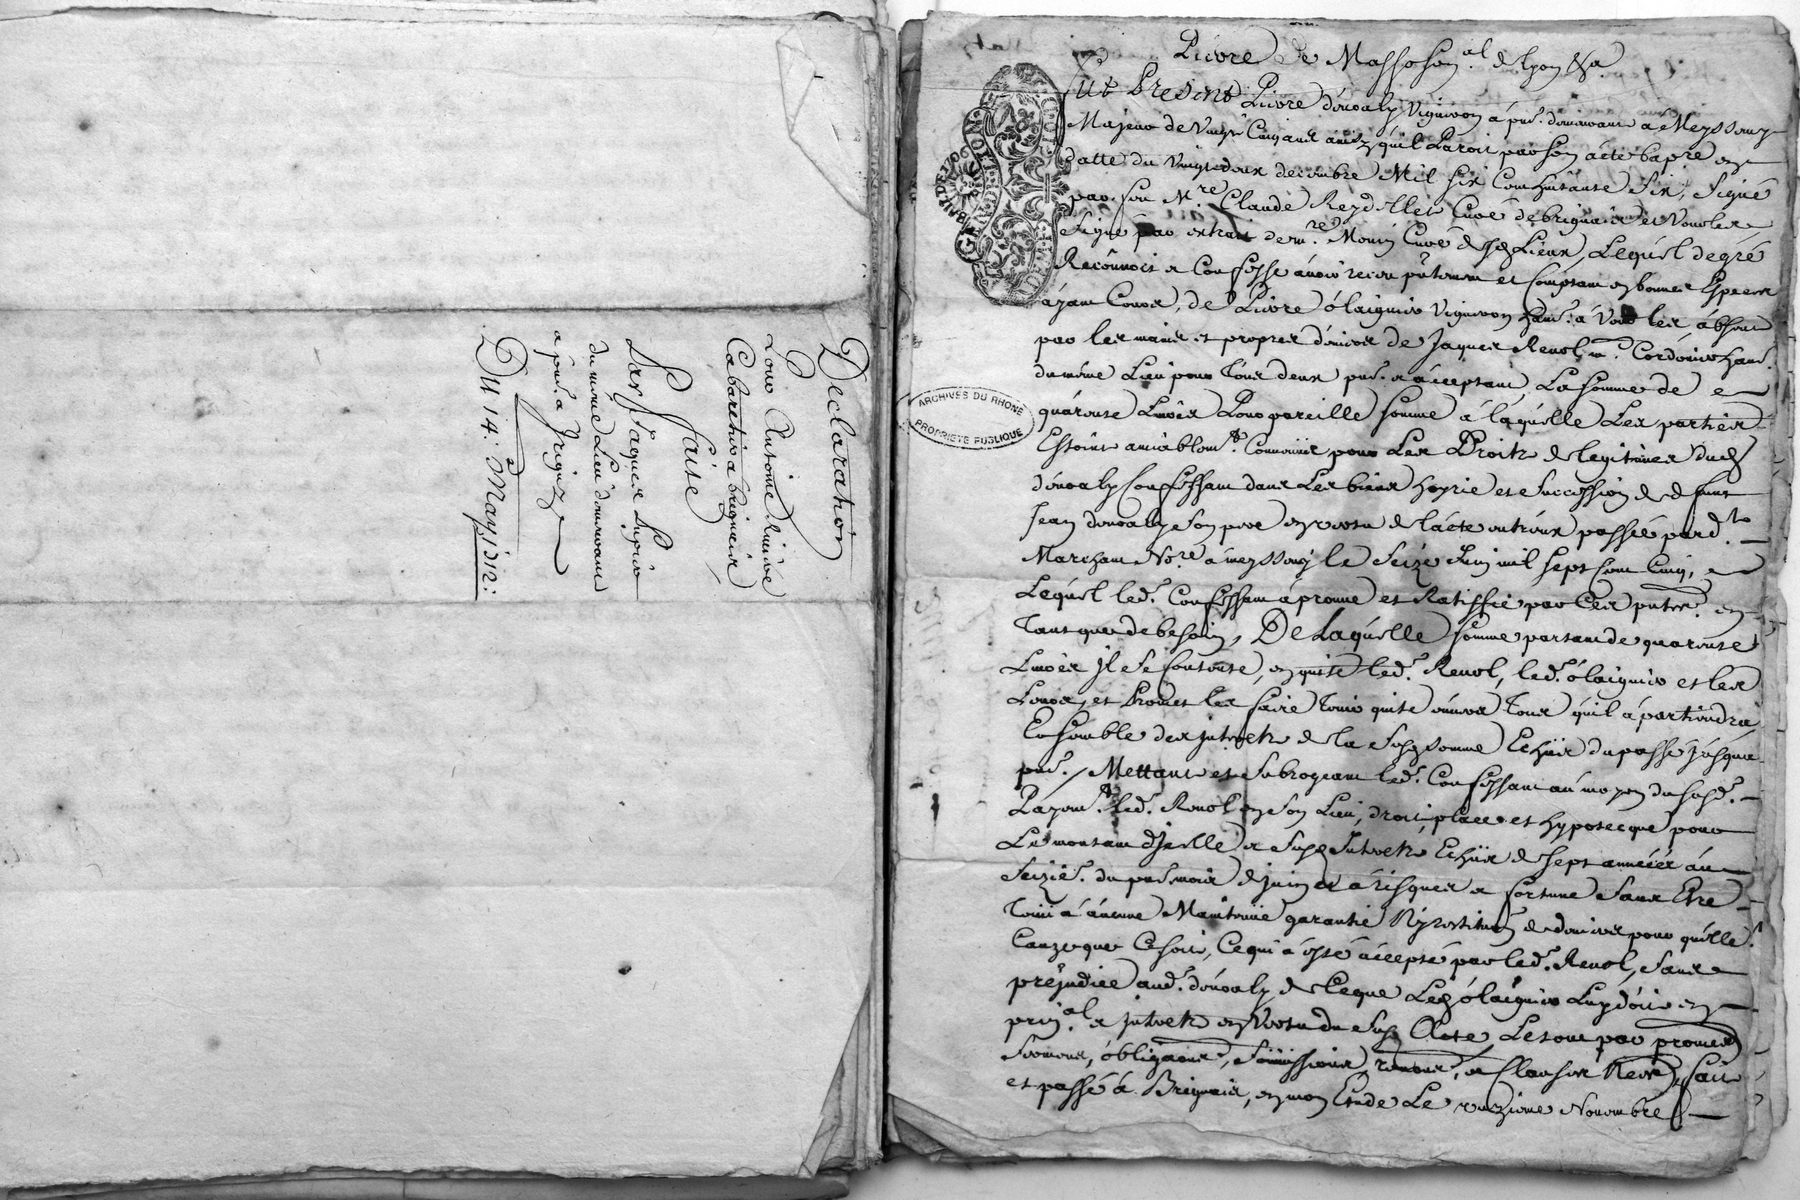 Declaration
Pour Antoine
Cabaretier a brignais
Faite
Par Jaques
du mesme Lieu demeurant
a pnt a Irigny
Du 14: May 1712:
ARCHIVES DU RHONE
PROPRIETE PUBLIQUE
GEN DE LION
Pierre de Massoson al de lyon &a
Fut Present Pierre donzaly Vigneron á pnt demeurant a Meyssouy
Majeur de Vingt Cinq ans ainsy quil Paroit par son acte baptre en
datte du Vingt deux decembre Mil six Cent huitante six, signé
par feu Mre Claude Reydellet Curé de brignais et Vourles
signé par extrait de mre Morin Curé desd Lieux, Lequel de gré
Reconnoit & Confesse avoir receu pntement et Comptant en bonnes Especes
ayant Cours, de Pierre olaignier Vigneron hant á Vourles absent
par les mains et propres deniers de Jaques Renol me Cordonier hant
du mesme Lieu pour Tous deux pnt & acceptant La somme de
quarente Livres Pour pareille somme á laquelle Les parties
Estoint amiablemt Convenües pour Les Droits de legitimes dud
donzaly Confessant dans Les biens hoyrie et succession de defunt
Jean donzaly son pere en vertu de lacte entreux passé pard
Marchant Nore á meyssouy le seize Juin mil sept Cent Cinq,
Lequel led. Confessant aprouve et Ratiffie par Ces pntes en
Tant que de besoin, De Laquelle somme partant de quarente
Livres Jl se Contente, en quite led. Renol, led. olaignier et les
Leurs, et Promet les faire Tenir quite envers Tous quil apartiendra
Ensemble des Jnterets de la susd somme Echüs du passé jusques
pnt / Mettant et subrogeant led. Confessant au moyen du susd.
Payemt led. Renol en son Lieu, droit, place et hypoteque pour
Le montant dJcelle & susd Jnterets Echüs de sept années au
seizie. du pnt mois de juin & a risques & fortune sans Etre
Tenu á aucune Maintenüe garantie Ny restitution de deniers pour quelle
Cauze que Ce soit, Ce qui á esté accepté par led. Renol, sans
prejudice aud. donzaly de Ce que Led olaignier Luy doit en
prin.al & jnterets en Vertu du susd Acte Le tout par promesses
serments, obligaons, soumissions, renons, & Clauses Necres, fait
et passé á Brignais, en mon Etude Le onzieme Novembre